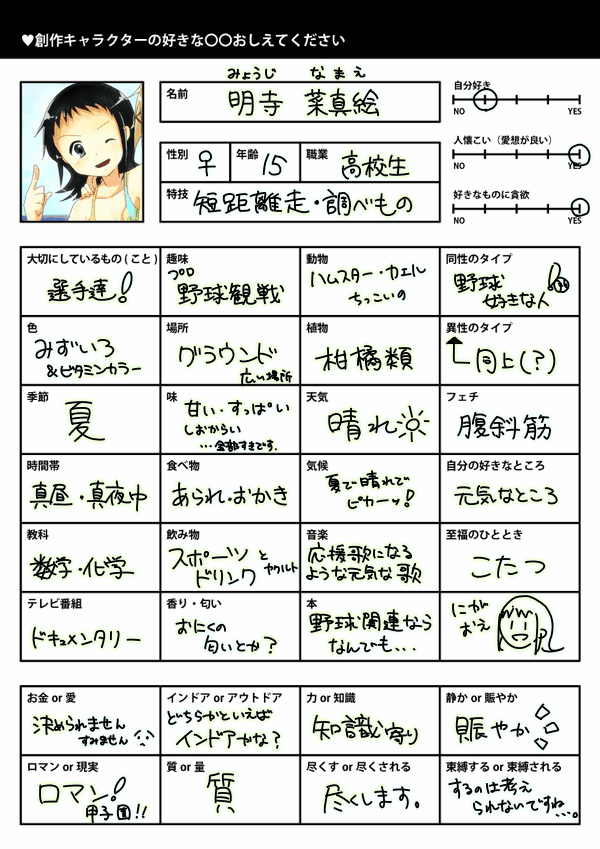 ♥創作キャラクターの好きな〇〇おしえてください
みょうじ なまえ
名前 明寺 菜真絵
性別 ♀ 年齢 15 職業 高校生
特技 短距離走・調べもの
自分好き
NO YES
人懐こい（愛想が良い）
NO YES
好きなものに貪欲
NO YES
大切にしているもの(こと)
選手達!
趣味
プロ
野球観戦
動物
ハムスター・カエル
ちっこいの
同性のタイプ
野球
好きな人
色
みずいろ
&ビタミンカラー
場所
グラウンド
広い場所
植物
柑橘類
異性のタイプ
同上(?)
季節
夏
味
甘い・すっぱい
しおからい
…全部すきです.
天気
晴れ
フェチ
腹斜筋
時間帯
真昼・真夜中
食べ物
あられ・おかき
気候
夏で晴れで
ピカーッ!
自分の好きなところ
元気なところ
教科
数学・化学
飲み物
スポーツ
ドリンク
とヤクルト
音楽
応援歌になる
ような元気な歌
至福のひととき
こたつ
テレビ番組
ドキュメンタリー
香り・匂い
おにくの
匂いとか?
本
野球関連なら
なんでも...
にが
おえ
お金 or 愛
決められません
すみません
インドア or アウトドア
どちらかといえば
インドアかな?
力 or 知識
知識寄り
静か or 賑やか
賑やか
ロマン or 現実
ロマン!
甲子園!!
質 or 量
質
尽くす or 尽くされる
尽くします。
束縛する or 束縛される
するのは考え
られないですね...。